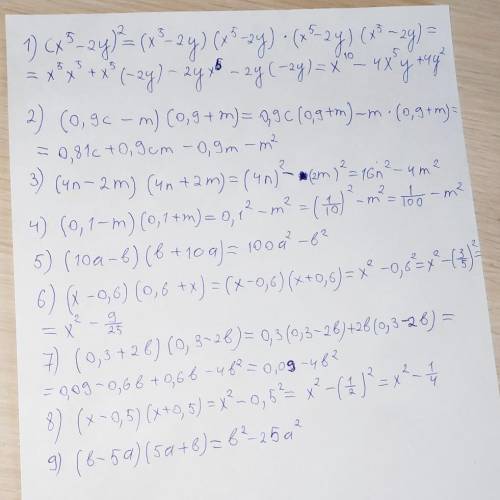 1) (x⁵-2y)² = (x⁵-2y)(x⁵-2y)·(x⁵-2y)(x⁵-2y)=
= x⁵x⁵+x⁵(-2y)-2yx⁵-2y(-2y)=x¹⁰-4x⁵y+4y²
2) (0,9c-m)(0,9+m)=0,9c(0,9+m)-m·(0,9+m)=
= 0,81c+0,9cm-0,9m-m²
3) (4n-2m)(4n+2m)=(4n)²-(2m)²=16n²-4m²
4) (0,1-m)(0,1+m)=0,1²-m²=(1/10)²-m²=1/100-m²
5) (10a-в)(в+10a)=100a²-в²
6) (x-0,6)(0,6+x)=(x-0,6)(x+0,6)=x²-0,6²=x²-(3/5)²=
= x²-9/25
7) (0,3+2в)(0,3-2в)=0,3(0,3-2в)+2в(0,3-2в)=
= 0,09-0,6в+0,6в-4в²=0,09-4в²
8) (x-0,5)(x+0,5)=x²-0,5²=x²-(1/2)²=x²-1/4
9) (в-5a)(5a+в)=в²-25a²